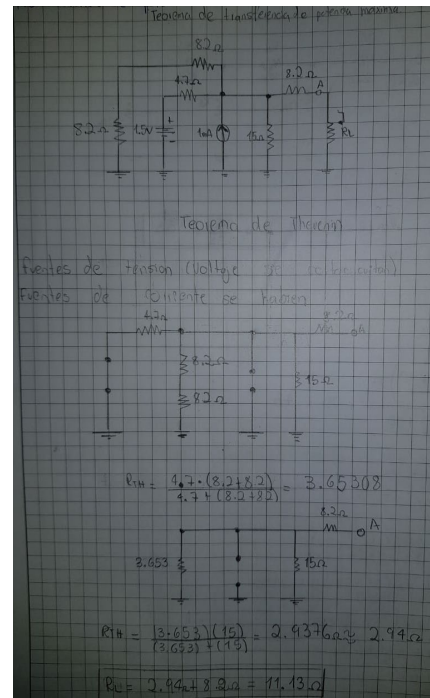 Teorema de transferencia de potencia maxima
82Ω
4.7Ω
8.2Ω
A
8.2Ω
1.5V
+
-
1mA
15Ω
RL
Teorema de Thevenin
fuentes de tension (Voltaje se
Fuentes de corriente se habren
4.7Ω
8.2Ω
A
8.2Ω
82Ω
15Ω
RTH = 4.7 · (8.2+82) = 3.65308
4.7 + (8.2+82)
8.2Ω
A
3.653
15Ω
RTH = (3.653)(15) = 2.9376Ω ≈ 2.94Ω
(3.653) + (15)
RL = 2.94Ω + 8.2Ω = 11.13Ω